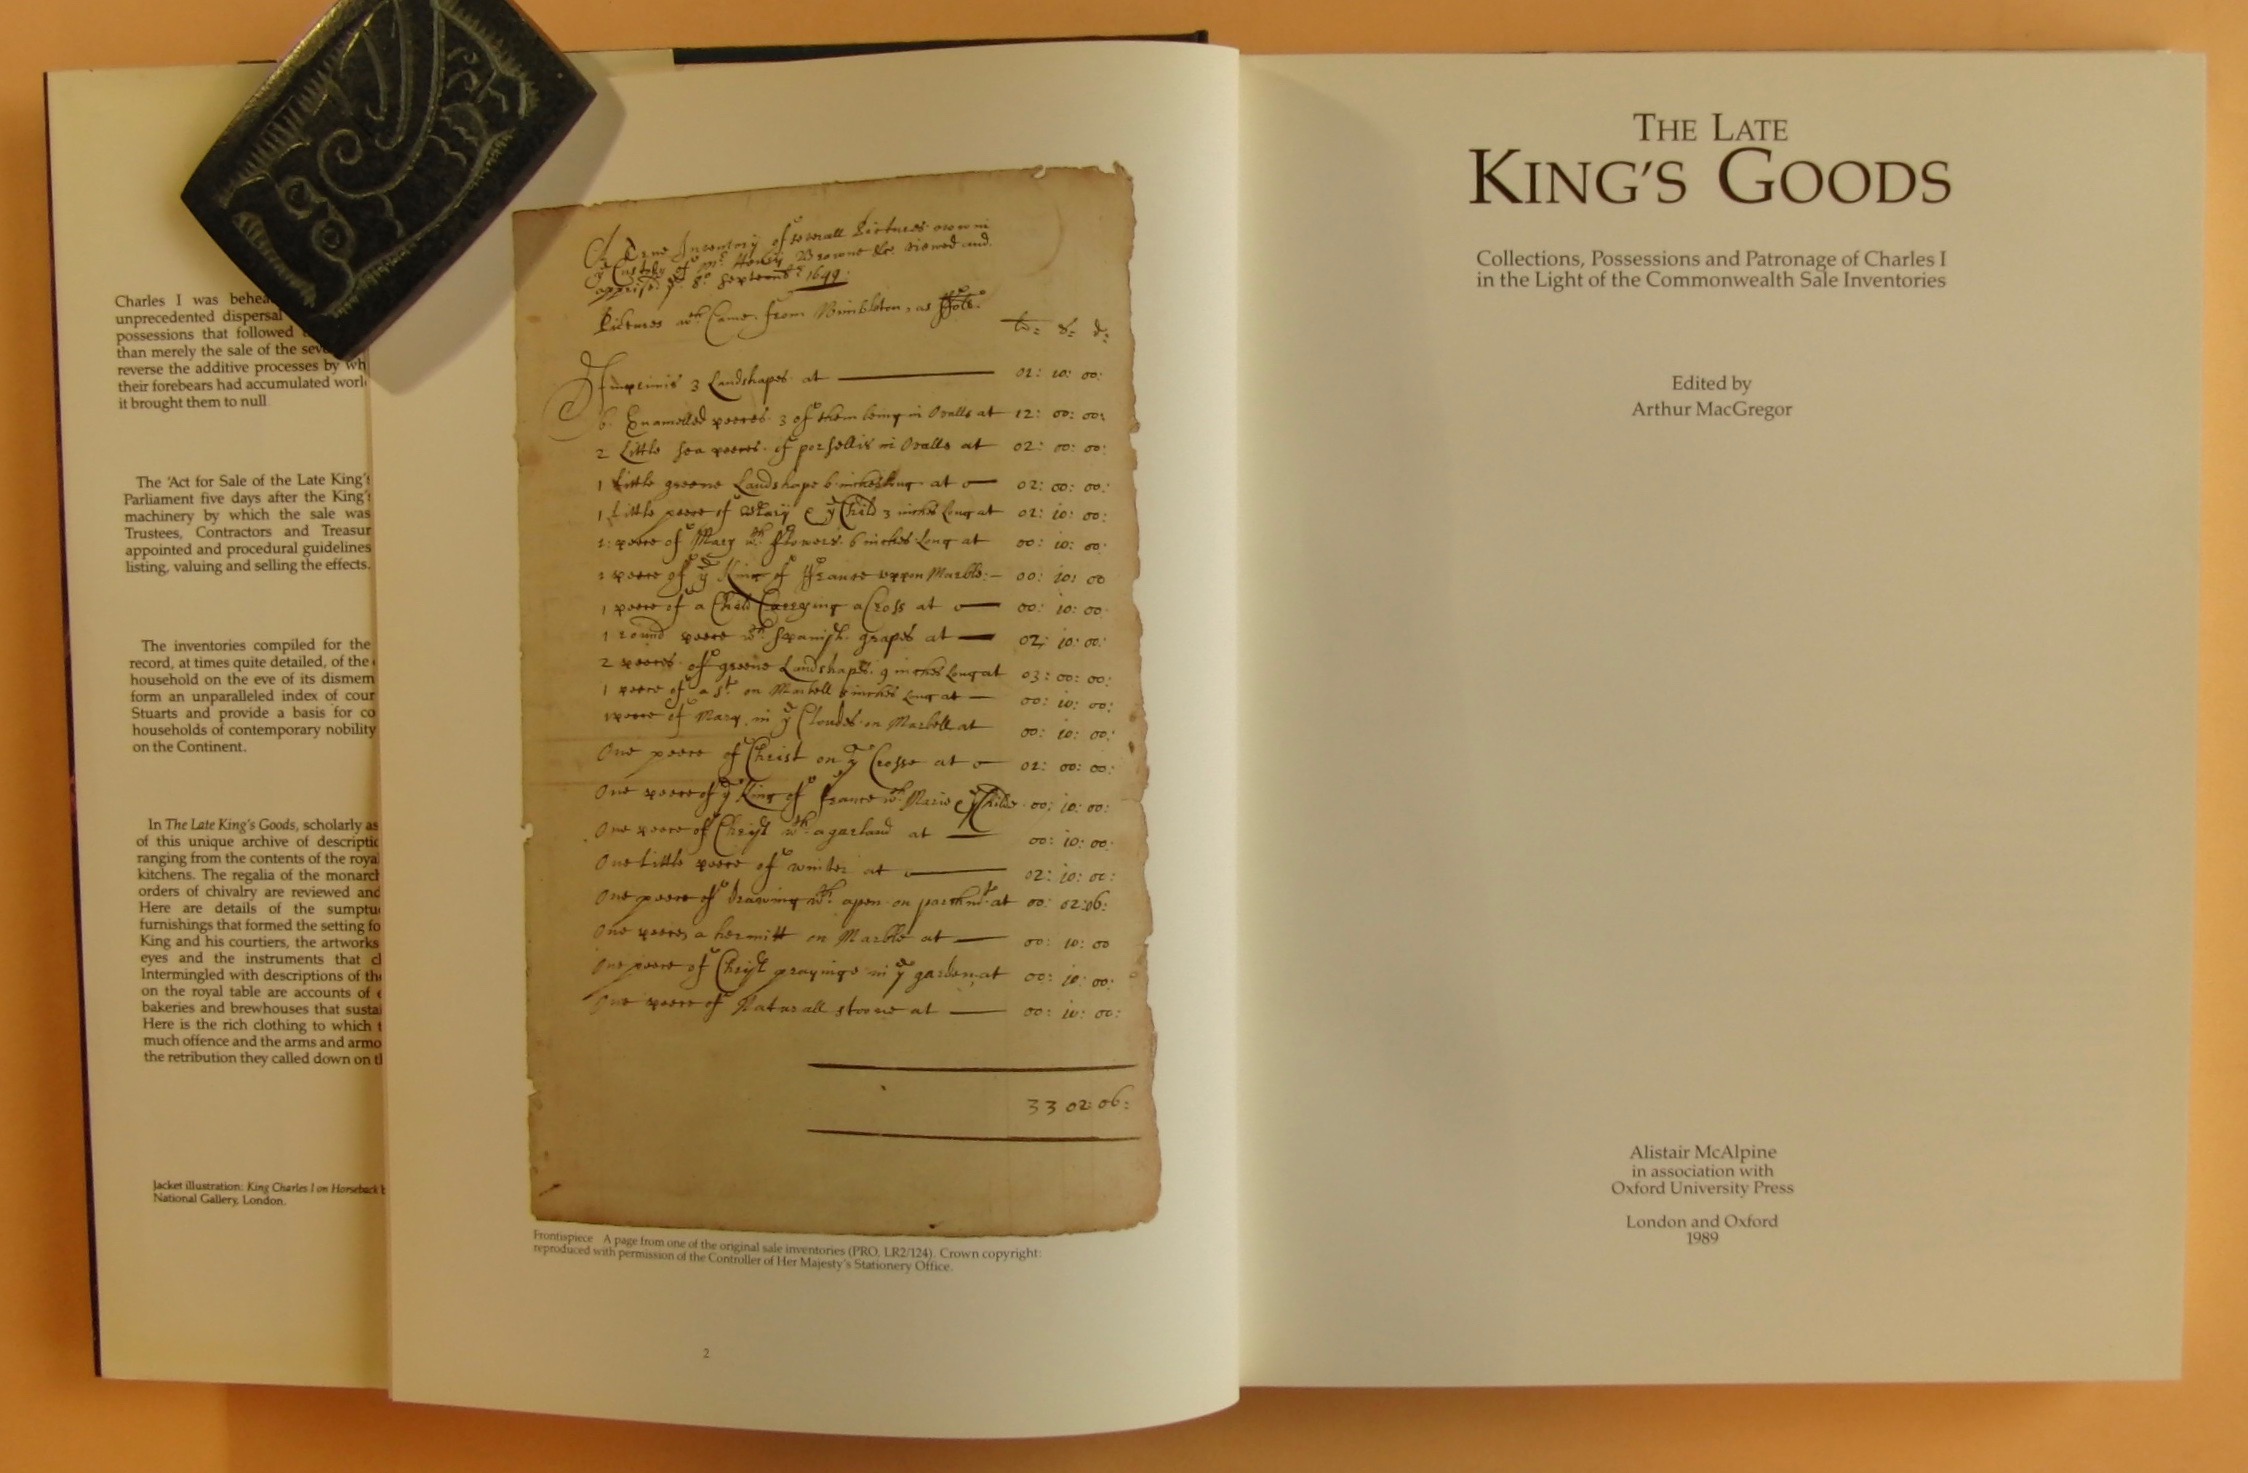 Charles I was
unprecedented dispersal
possessions that followed
than merely the sale of the
reverse the additive processes by
their forebears had accumulated
it brought them to null
The 'Act for Sale of the Late King's
Parliament five days after the King's
machinery by which the sale was
Trustees, Contractors and
appointed and procedural guidelines
listing, valuing and selling the effects.
The inventories compiled for the
record, at times quite detailed, of the
household on the eve of its
form an unparalleled index of
Stuarts and provide a basis for
households of contemporary nobility
on the Continent.
In The Late King's Goods, scholarly
of this unique archive of
ranging from the contents of the
kitchens. The regalia of the
orders of chivalry are reviewed and
Here are details of the
furnishings that formed the setting
King and his courtiers, the artworks
eyes and the instruments that
Intermingled with descriptions of
on the royal table are accounts of
bakeries and brewhouses that
Here is the rich clothing to which
much offence and the arms and
the retribution they called down on
Jacket illustration: King Charles I on Horseback
National Gallery, London.
Inventory of severall Pictures now in
ye Custody of Mr Henry Browne &c viewed and
apprised ye 8o 1649:
Pictures wch Came from Wimbleton, as
Imprimis 3 Landshapes at 02: 10: 00:
6 Enamelled peeces 3 of them being in Ovalls at 12: 00: 00:
2 Little sea peeces of in Ovalls at 02: 00: 00:
1 Little greene Landshape 6 inches long at 02: 00: 00:
1 Little peece of Mary & ye Child 3 inches Long at 02: 10: 00:
1: peece of Mary wth flowers 6 inches Long at 00: 10: 00:
1 peece of ye King of ffrance uppon Marble: 00: 10: 00
1 peece of a Child Carrying a Cross at 00: 10: 00
1 round peece wth Spanish grapes at 02: 10: 00:
2 peeces of greene Landshapes 9 inches Long at 03: 00: 00:
1 peece of a St on Marbell inches Long at 00: 10: 00:
1 peece of Mary in ye Cloudes on Marbell at 00: 10: 00:
One peece of Christ on ye Crosse at 02: 00: 00:
One peece of ye King of france wth Marie & ye Childe 00: 10: 00:
One peece of Christ wth a garland at 00: 10: 00:
One Little peece of winter at 02: 10: 00:
One peece of drawing wth a pen on parchmt at 00: 02: 06:
One peece a hermitt on Marble at 00: 10: 00
One peece of Christ prayinge in ye garden at 00: 10: 00:
One peece of Naturall stoone at 00: 10: 00:
33 02: 06:
Frontispiece A page from one of the original sale inventories (PRO, LR2/124). Crown copyright:
reproduced with permission of the Controller of Her Majesty's Stationery Office.
2
THE LATE
KING'S GOODS
Collections, Possessions and Patronage of Charles I
in the Light of the Commonwealth Sale Inventories
Edited by
Arthur MacGregor
Alistair McAlpine
in association with
Oxford University Press
London and Oxford
1989